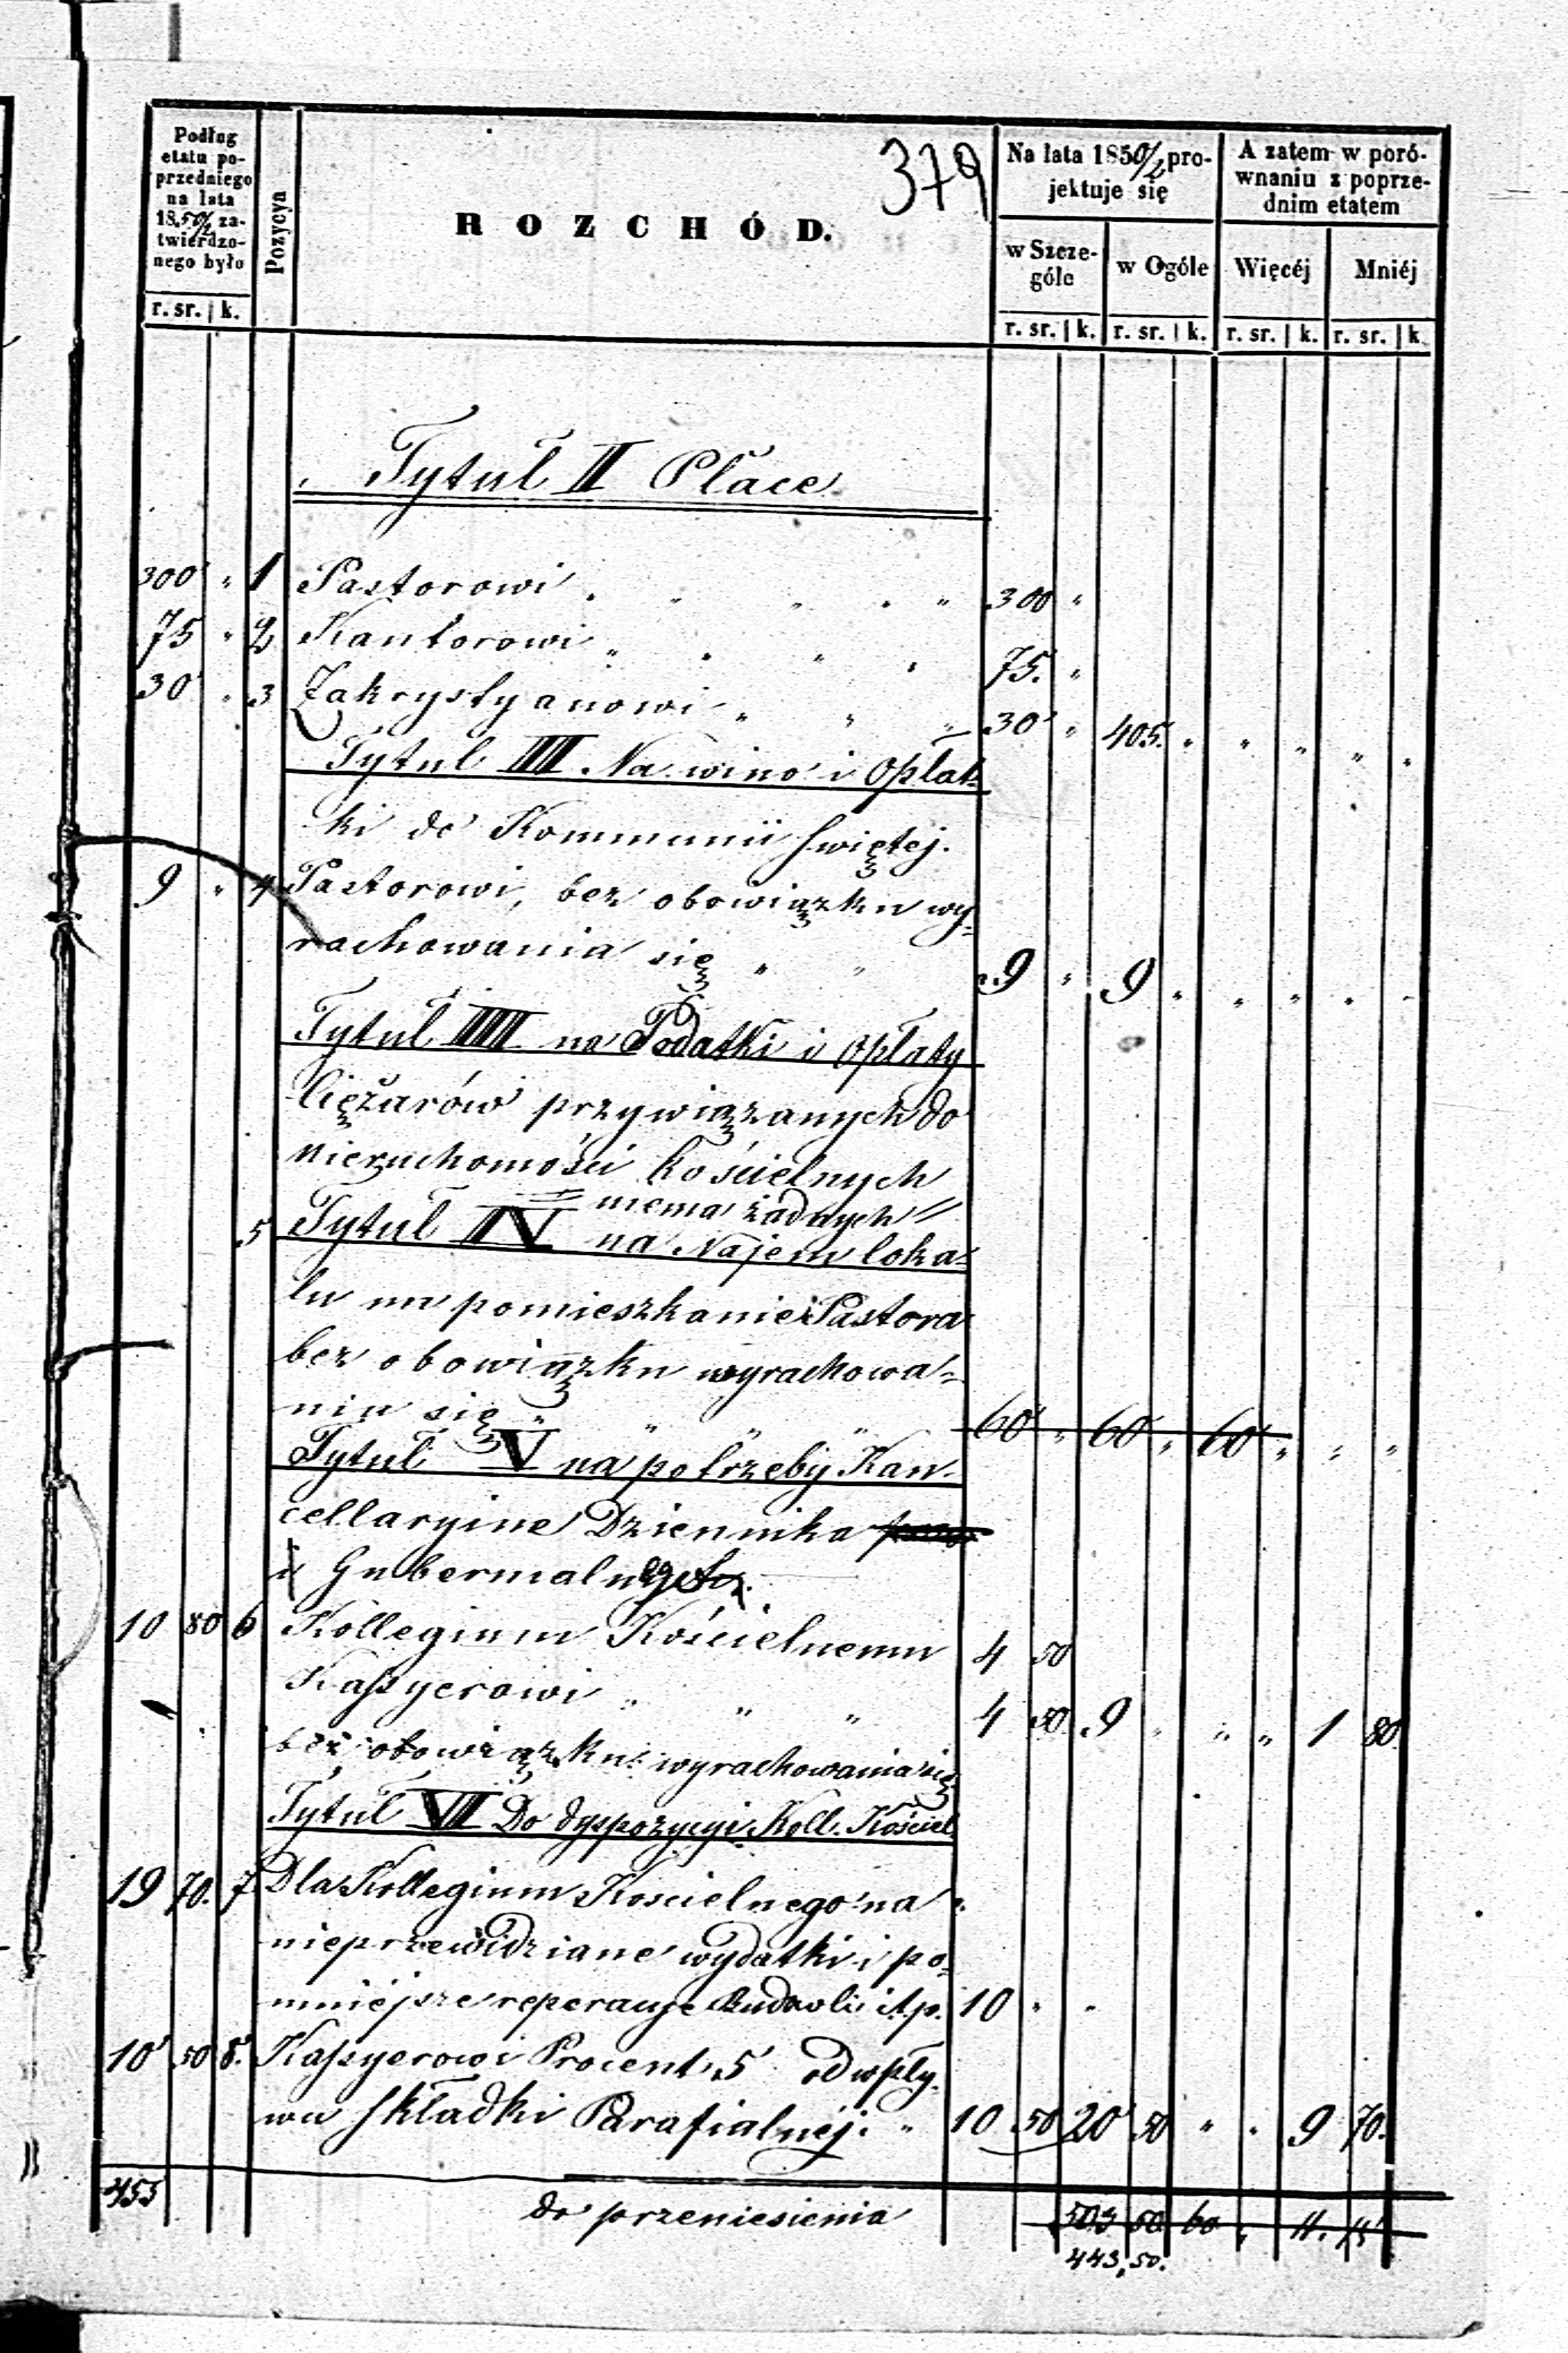 379
Podług
etatu po-
przedniego
na lata
18.50/2 za-
twierdzo-
nego było
r. sr. | k.
Pozycya
ROZCHÓD.
Na lata 1850/2 pro-
jektuje się
w Szcze-
góle
w Ogóle
r. sr. | k. r. sr. | k.
A zatem w poró-
wnaniu z poprze-
dnim etatem
Więcéj
Mniéj
r. sr. | k. r. sr. | k.
Tytuł II Płace
300 " 1 Pastorowi . " " . " 300 "
75 " 2 Kantorowi " . " . 75. "
30 " 3 Zakrystyanowi " " " 30 " 405. " " " " .
Tytuł III Na wino i Opłat-
ki do Kommunii Świętej.
9 " 4 Pastorowi, bez obowiązku wy-
rachowania się " " 9 " 9 " " " . "
Tytuł IIII na Podatki i opłaty
Ciężarów przywiązanych do
nieruchomości kościelnych
niema żadnych //
5 Tytuł IV na Najem loka-
lu na pomieszkanie Pastora
bez obowiązku wyrachowa-
nia się " " " " 60 " 60 " 60 " " "
Tytuł V na potrzeby Kan-
cellaryine Dziennika
i Gubermalnego.
10 80 6 Kollegium Kościelnemu 4 50
Kassyerowi " " " 4 50. 9 " " " 1 80.
bez obowiązku wyrachowania się
Tytuł VII Do dyspozycyi Koll. Kościel.
19 70. 7. Dla Kollegium Koscielnego na
nieprzewidziane wydatki i po-
mniéjsze reperacye Budowli i t.p. 10 " "
10 50 8. Kassyerowi Procent 5 od wpły-
wu Składki Parafialnéj. " 10 50 20 50 " . 9 70.
455 do przeniesienia 503 50 60 . 11.
443,50.